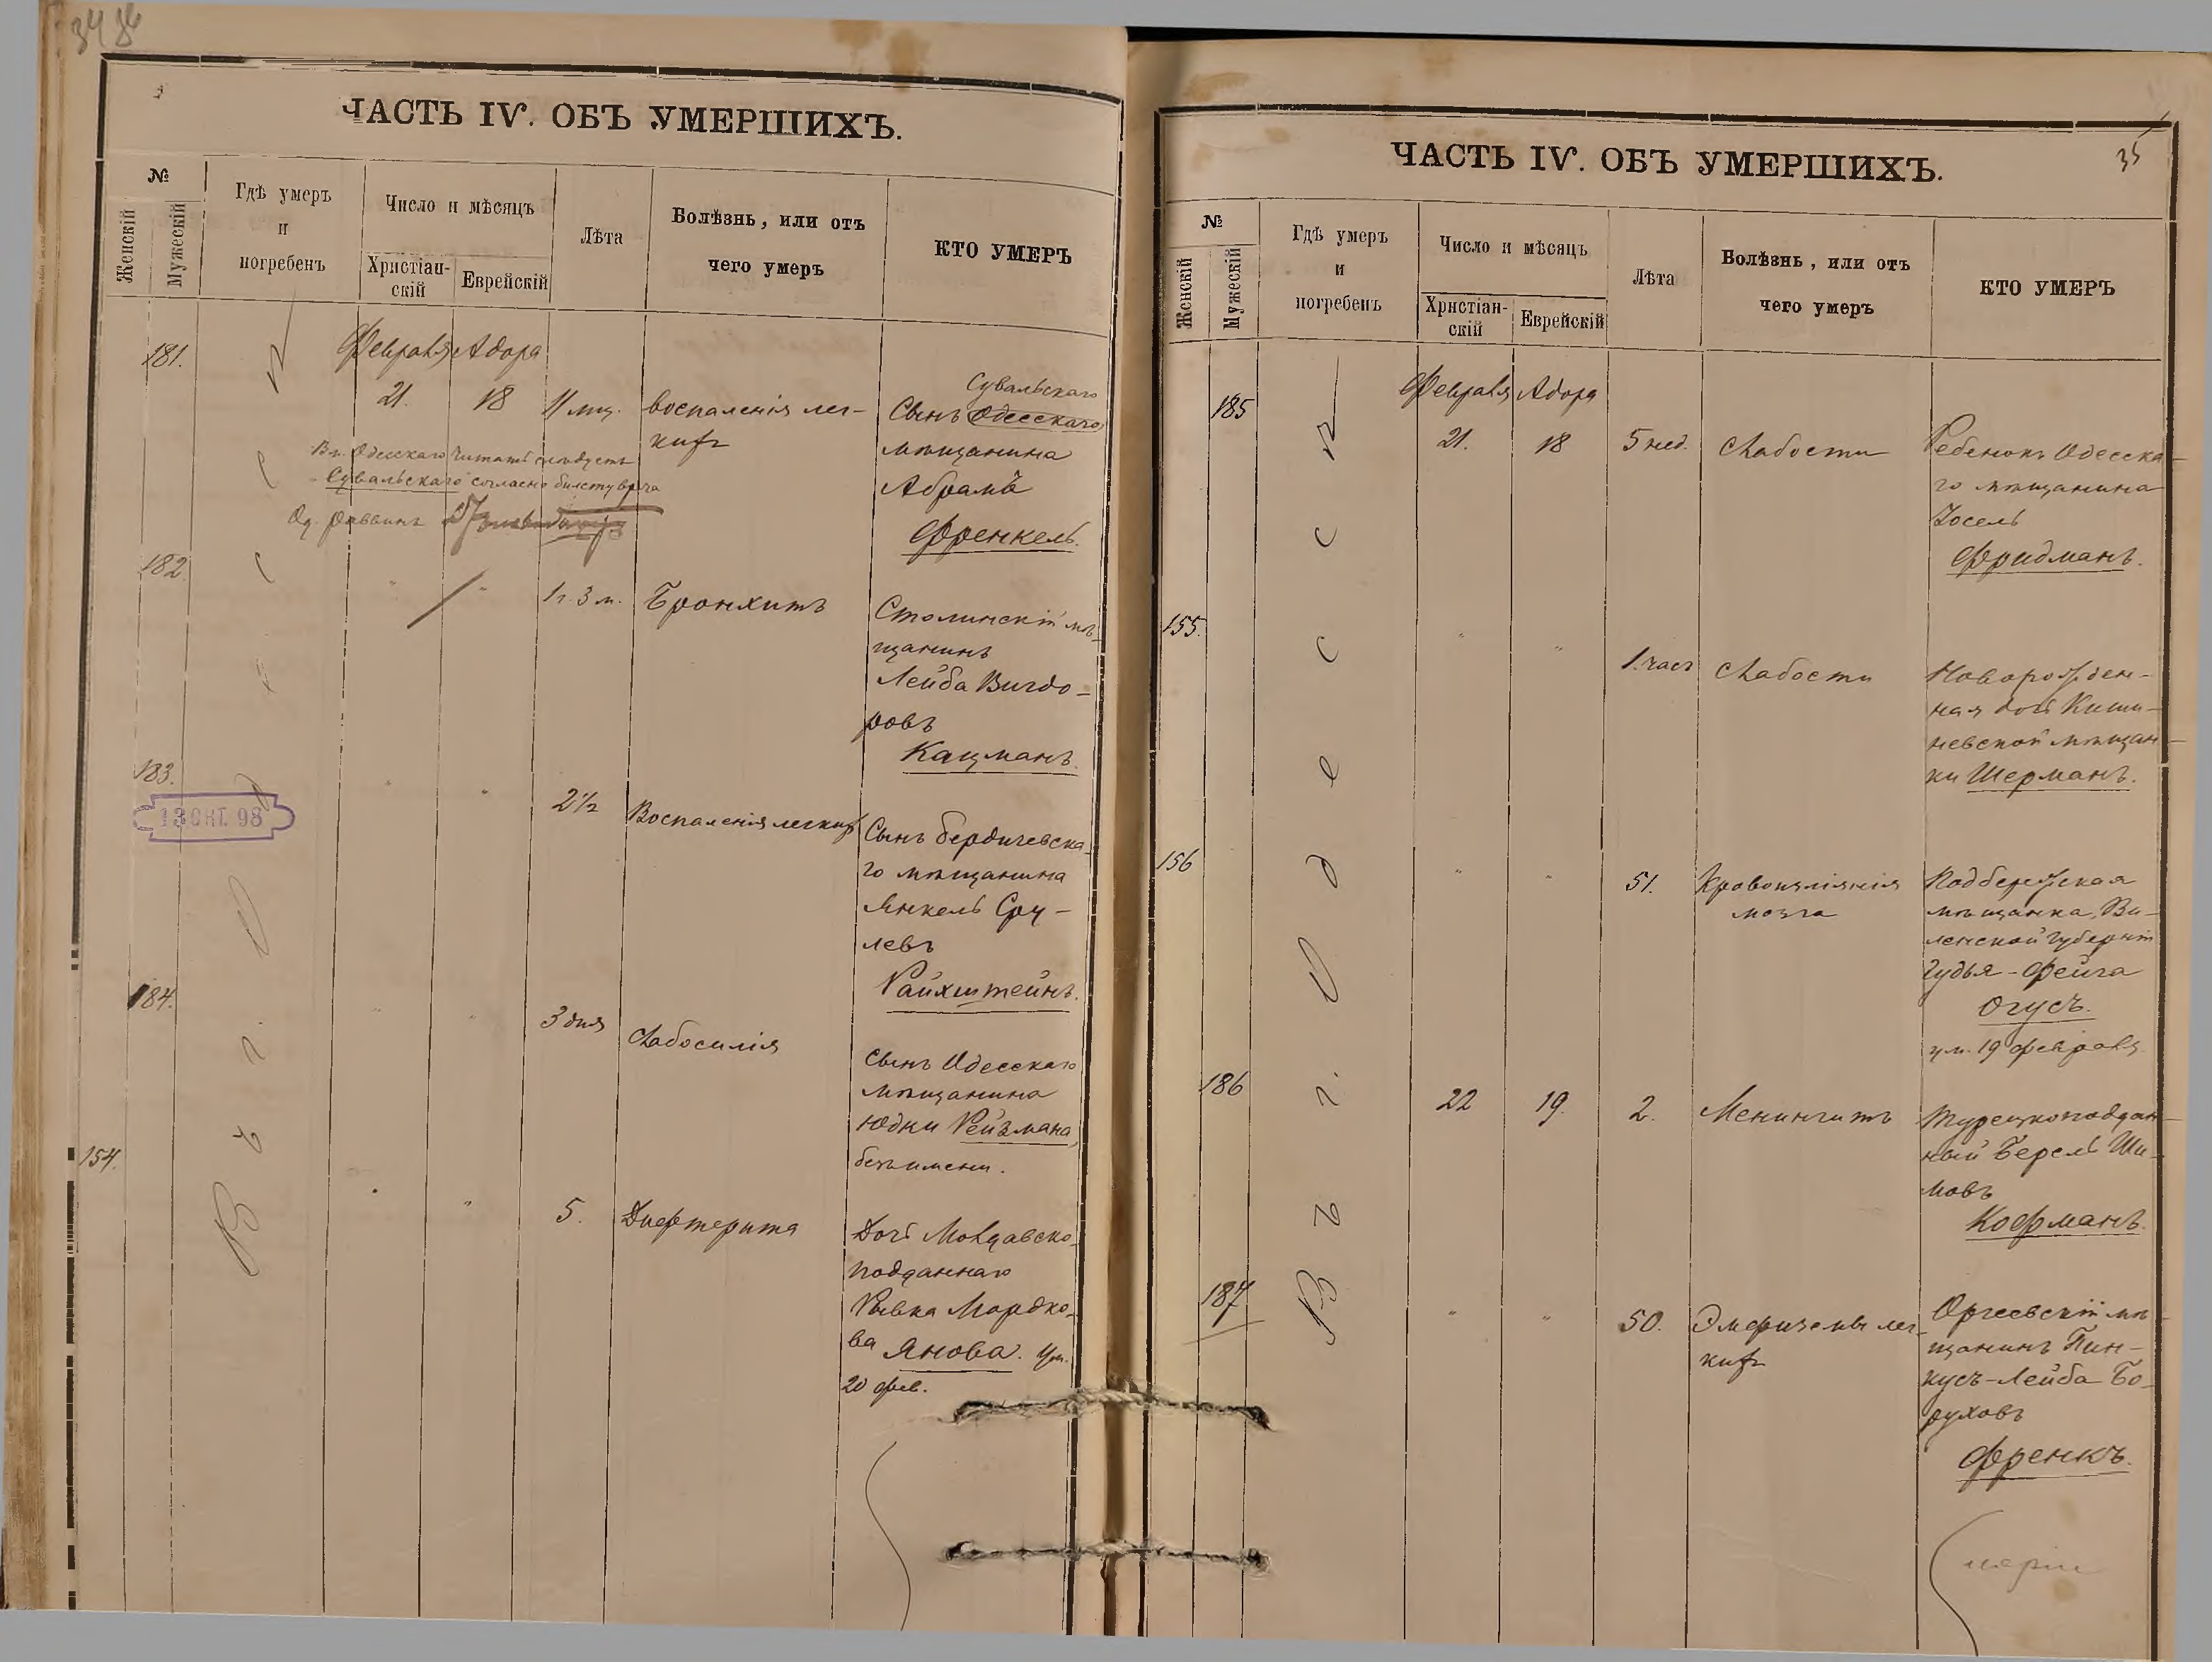 34
ЧАСТЬ IV. ОБЪ УМЕРШИХЪ.
№
Женскій
Мужескій
Гдѣ умеръ
и
погребенъ
Число и мѣсяцъ
Христіан-
скій
Еврейскій
Лѣта
Болѣзнь, или отъ
чего умеръ
КТО УМЕРЪ
Въ г. Одессѣ
181.
Февраля Адора
21. 18 11 мц.
воспаленія лег-
кихъ
Сувальскаго
Сынъ Одесскаго
мѣщанина
Абрама
Френкель.
Вм. Одесскаго читать слѣдуетъ
Сувальскаго согласно билету врача
Од. Раввинъ
182.
" " 1 г. 3 м. Бронхитъ
Столинскій мѣ-
щанинъ
Лейба Вигдо-
ровъ
Кацманъ.
183.
13 ОКТ. 98
" " 2 1/2 Воспаленія легкихъ
Сынъ Бердичевска-
го мѣщанина
Янкель Сру-
левъ
Райхштейнъ.
184.
" " 3 дня Слабосилія
Сынъ Одесскаго
мѣщанина
Юдки Рейзмана,
безъ имени.
154.
" " 5. Дифтерита
Дочь Молдавско-
подданнаго
Рывка Мордко-
ва Янова. Ум.
20 фев.
35
ЧАСТЬ IV. ОБЪ УМЕРШИХЪ.
№
Женскій
Мужескій
Гдѣ умеръ
и
погребенъ
Число и мѣсяцъ
Христіан-
скій
Еврейскій
Лѣта
Болѣзнь, или отъ
чего умеръ
КТО УМЕРЪ
Въ г. Одессѣ
185
Февраля Адора
21. 18 5 нед. Слабости
Ребенокъ Одесска-
го мѣщанина
Іосель
Фридманъ.
155.
" " 1. часъ Слабости
Новорожден-
ная дочь Киши-
невской мѣщан-
ки Шерманъ.
156
" " 51. Кровоизліянія
мозга
Подбережская
мѣщанка, Ви-
ленской губерніи
Гудья-Фейга
Огусъ.
ум. 19 февраля.
186
22 19. 2. Менингитъ
Турецкоподдан-
ный Берель Ши-
мовъ
Кофманъ.
187
" " 50. Эмфиземы лег-
кихъ
Оргеевскій мѣ-
щанинъ Пин-
кусъ-Лейба Бо-
руховъ
Френкъ.